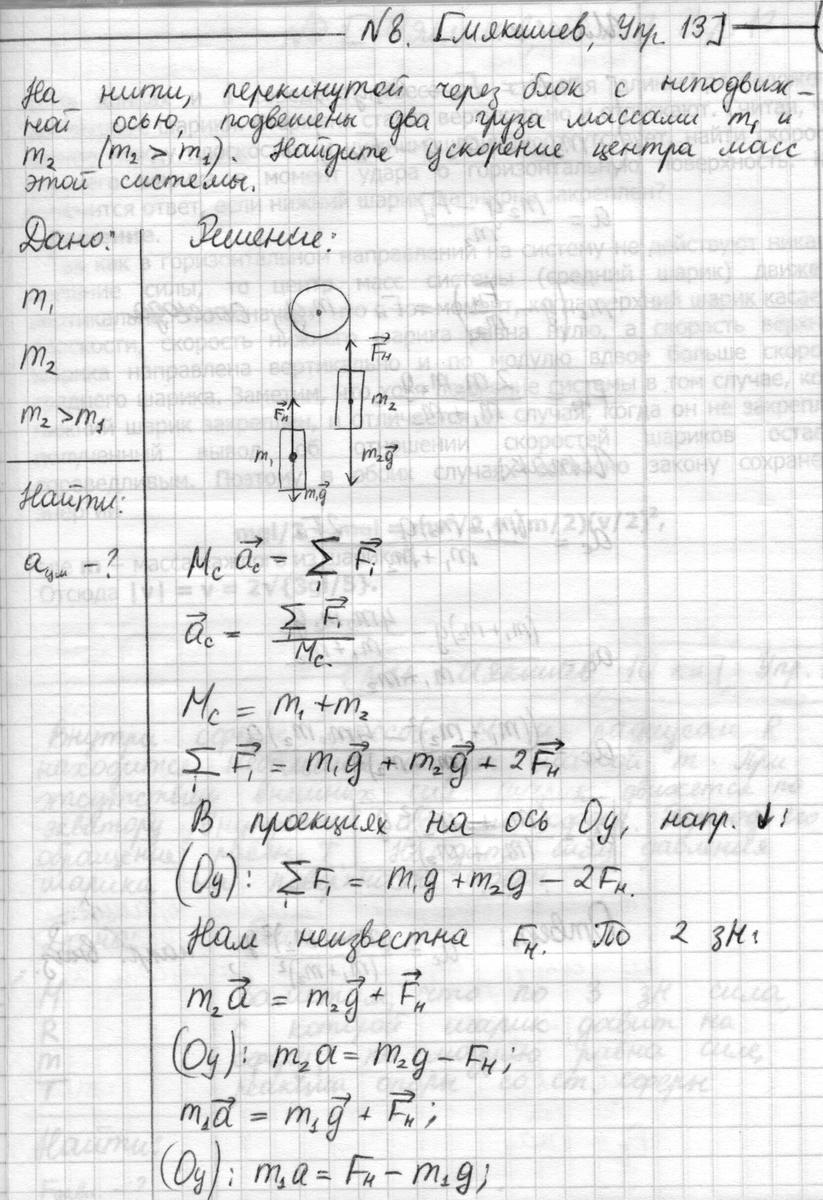 №8. [Мякишев, Упр 13]
На нити, перекинутой через блок с неподвиж-
ной осью, подвешены два груза массами m₁ и
m₂ (m₂ > m₁). Найдите ускорение центра масс
этой системы.
Дано: Решение:
m₁
m₂
m₂ > m₁
Найти:
aцм - ?
F⃗н
m₂
F⃗н
m₁
m₂g⃗
m₁g⃗
Mc a⃗c = ∑ F⃗i
a⃗c = ∑ F⃗i / Mc
Mc = m₁ + m₂
∑ F⃗i = m₁g⃗ + m₂g⃗ + 2F⃗н
В проекциях на ось Oy, напр. ↓:
(Oy): ∑ Fi = m₁g + m₂g − 2Fн.
Нам неизвестна Fн. По 2 зн:
m₂a⃗ = m₂g⃗ + F⃗н
(Oy): m₂a = m₂g − Fн;
m₁a⃗ = m₁g⃗ + F⃗н;
(Oy): m₁a = Fн − m₁g;